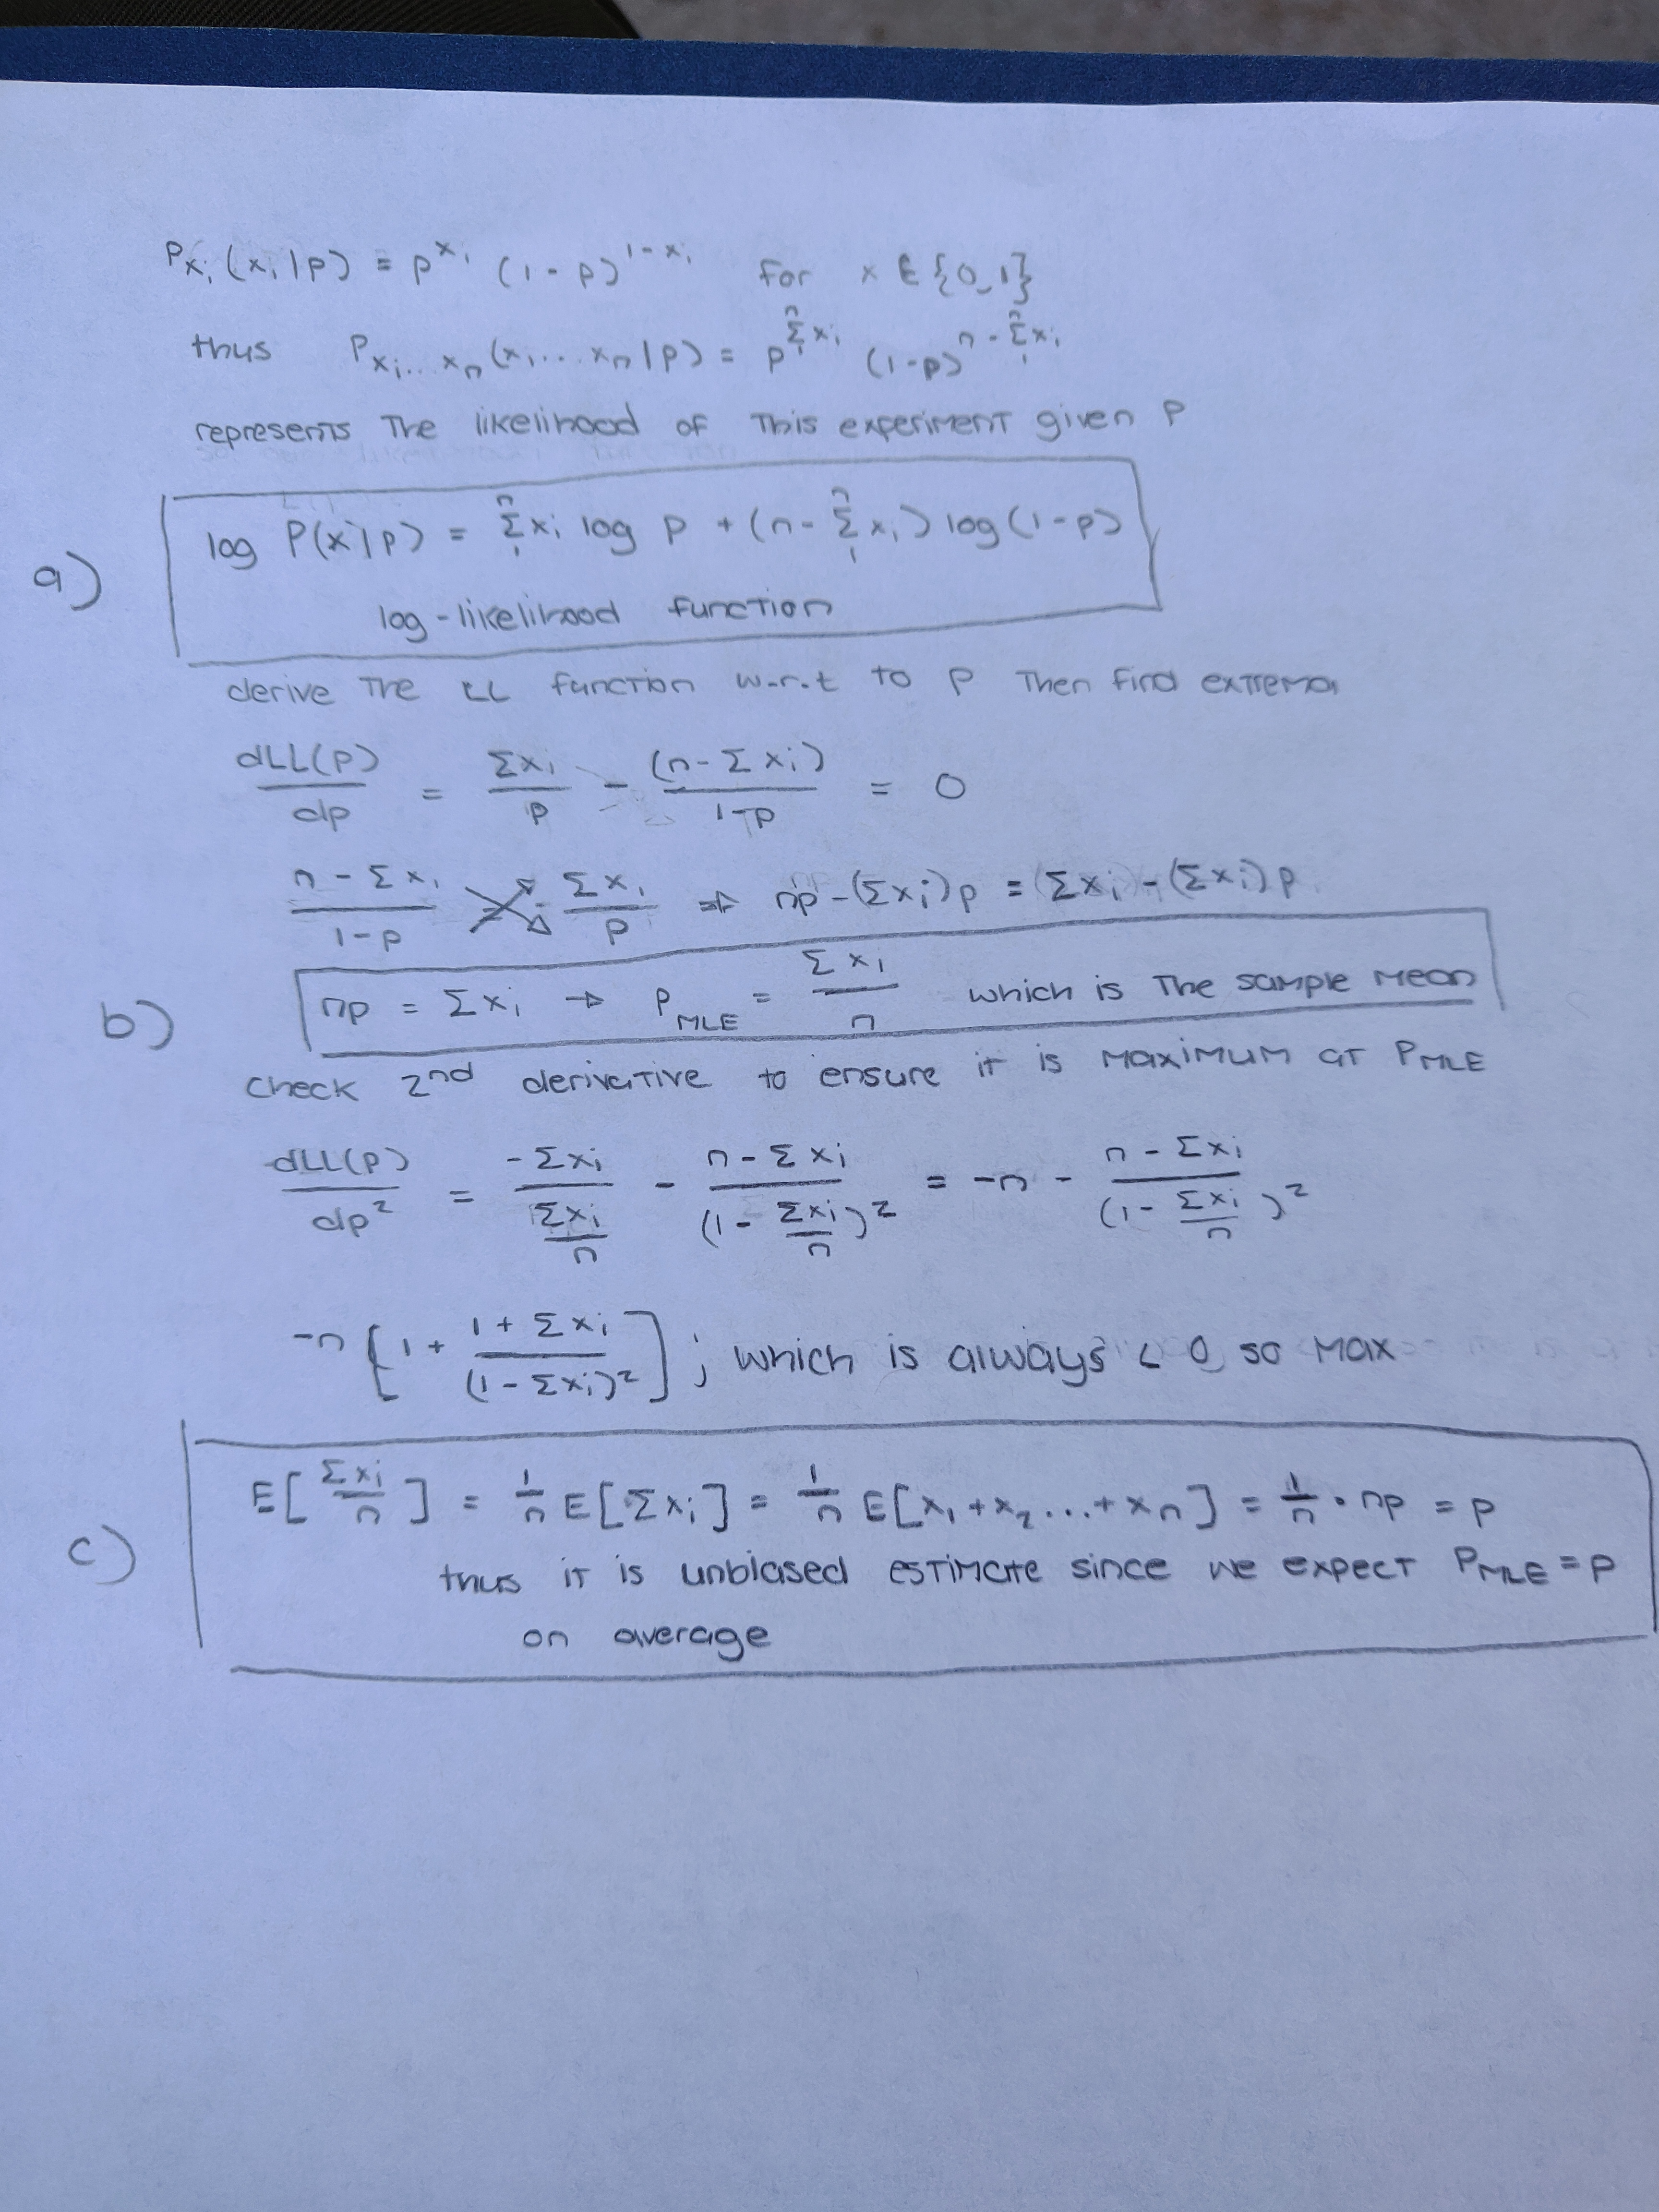 P_{x_i}(x_i|p) = p^{x_i} (1-p)^{1-x_i} for x ∈ {0,1}
thus P_{x_i...x_n}(x_1...x_n|p) = p^{\sum_1^n x_i} (1-p)^{n-\sum_1^n x_i}
represents the likelihood of this experiment given p
a) log P(x|p) = \sum_1^n x_i log p + (n-\sum_1^n x_i) log(1-p)
log-likelihood function
derive the LL function w.r.t to p then find extrema
\frac{dLL(p)}{dp} = \frac{Σx_i}{p} - \frac{(n-Σx_i)}{1-p} = 0
\frac{n-Σx_i}{1-p} = \frac{Σx_i}{p} ⇒ np-(Σx_i)p = (Σx_i)-(Σx_i)p
b) np = Σx_i → P_{MLE} = \frac{Σx_i}{n} which is the sample mean
check 2nd derivative to ensure it is maximum at P_{MLE}
\frac{dLL(p)}{dp^2} = \frac{-Σx_i}{\frac{Σx_i}{n}} - \frac{n-Σx_i}{(1-\frac{Σx_i}{n})^2} = -n - \frac{n-Σx_i}{(1-\frac{Σx_i}{n})^2}
-n[1+\frac{1+Σx_i}{(1-Σx_i)^2}]; which is always < 0, so max
c) E[\frac{Σx_i}{n}] = \frac{1}{n}E[Σx_i] = \frac{1}{n}E[x_1+x_2...+x_n] = \frac{1}{n}·np = p
thus it is unbiased estimate since we expect P_{MLE} = p
on average